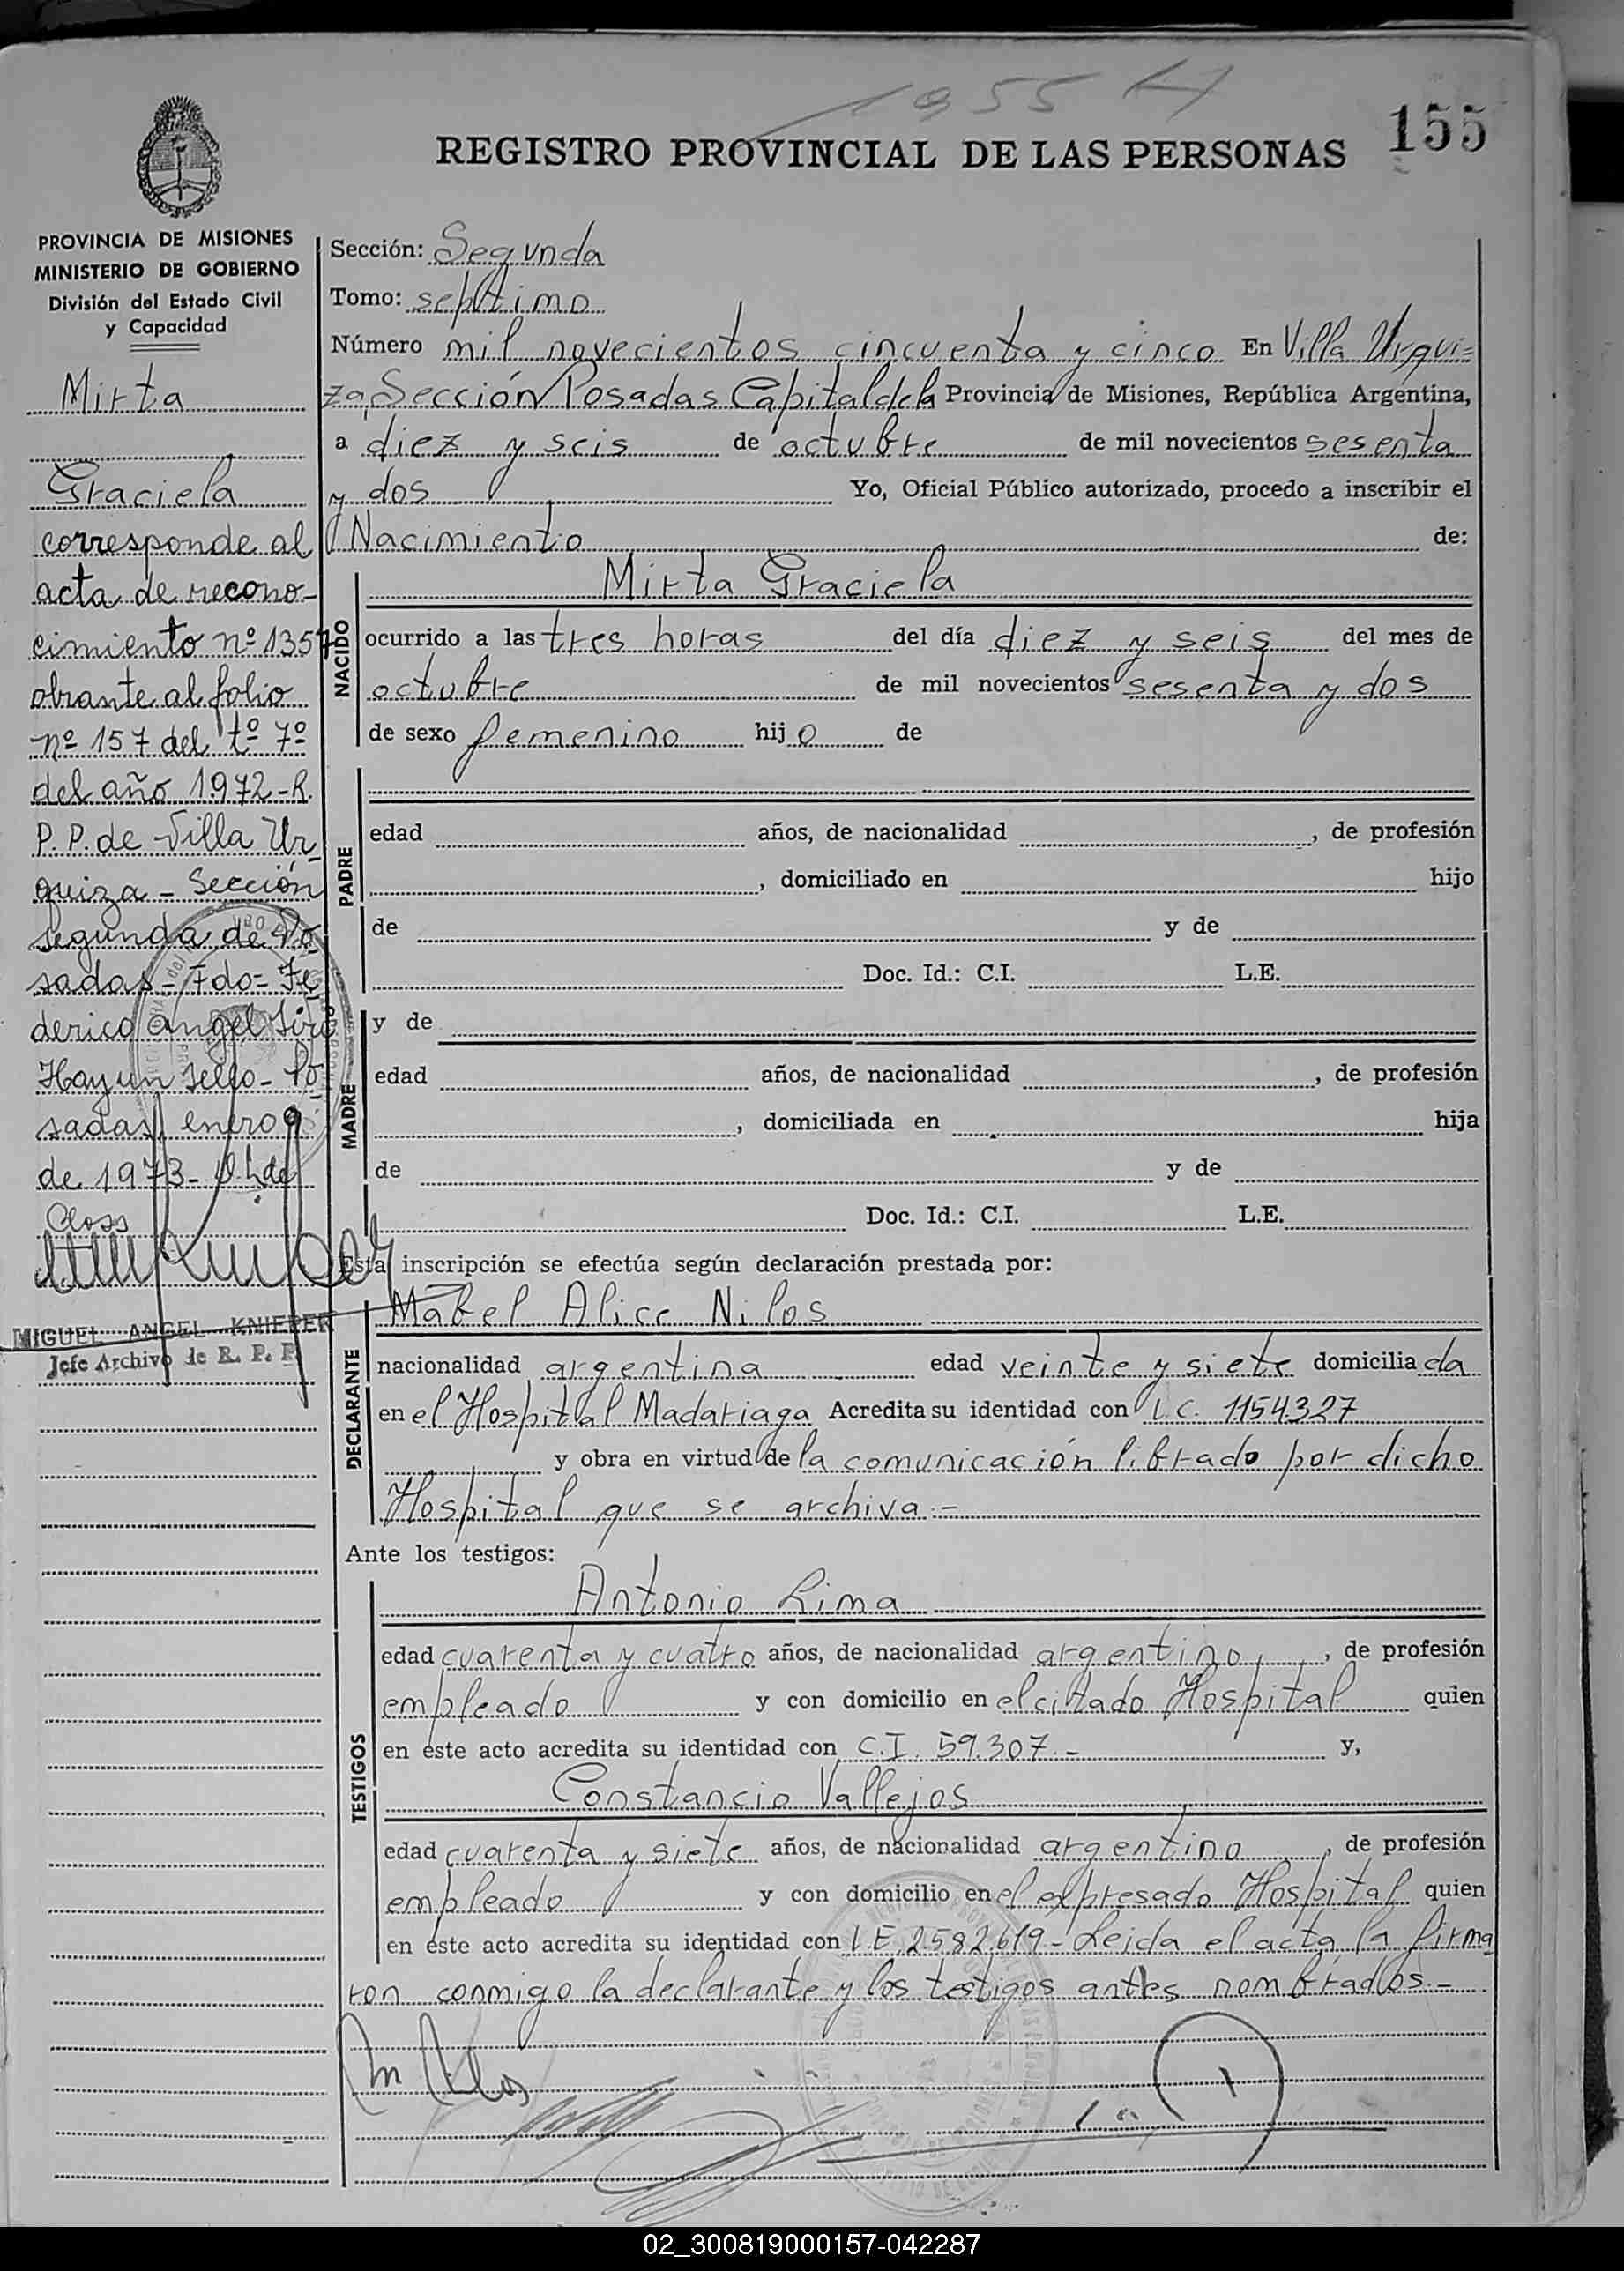 1955 H
155
REGISTRO PROVINCIAL DE LAS PERSONAS
PROVINCIA DE MISIONES
MINISTERIO DE GOBIERNO
División del Estado Civil
y Capacidad
Mirta
Graciela
corresponde al
acta de recono-
cimiento nº 1357
obrante al folio
nº 157 del tº 7º
del año 1972-R.
P.P. de Villa Ur
quiza - Sección
segunda de Po
sadas - Fdo - Fe
derico Angel
Hay un sello - Po
sadas, enero 9
de 1973-
Closs
MIGUEL ANGEL KNIEPER
Jefe Archivo de R. P. P.
Sección: Segunda
Tomo: septimo
Número mil novecientos cincuenta y cinco En Villa Urqui=
za, Sección Posadas Capital de la Provincia de Misiones, República Argentina,
a diez y seis de octubre de mil novecientos sesenta
y dos Yo, Oficial Público autorizado, procedo a inscribir el
Nacimiento de:
NACIDO
Mirta Graciela
ocurrido a las tres horas del día diez y seis del mes de
octubre de mil novecientos sesenta y dos
de sexo femenino hijo de
PADRE
edad años, de nacionalidad , de profesión
, domiciliado en hijo
de y de
Doc. Id.: C.I. L.E.
MADRE
y de
edad años, de nacionalidad , de profesión
, domiciliada en hija
de y de
Doc. Id.: C.I. L.E.
Esta inscripción se efectúa según declaración prestada por:
DECLARANTE
Mabel Alice Nilos
nacionalidad argentina edad veinte y siete domiciliada
en el Hospital Madariaga Acredita su identidad con L.C. 1154327
y obra en virtud de la comunicación librado por dicho
Hospital que se archiva.-
Ante los testigos:
TESTIGOS
Antonio Lima
edad cuarenta y cuatro años, de nacionalidad argentino, de profesión
empleado y con domicilio en el citado Hospital quien
en este acto acredita su identidad con C.I. 59.307.- y,
Constancio Vallejos
edad cuarenta y siete años, de nacionalidad argentino, de profesión
empleado y con domicilio en el expresado Hospital quien
en este acto acredita su identidad con L.E. 2582619- Leida el acta, la firma
ron conmigo la declarante y los testigos antes nombrados.-
02_300819000157-042287